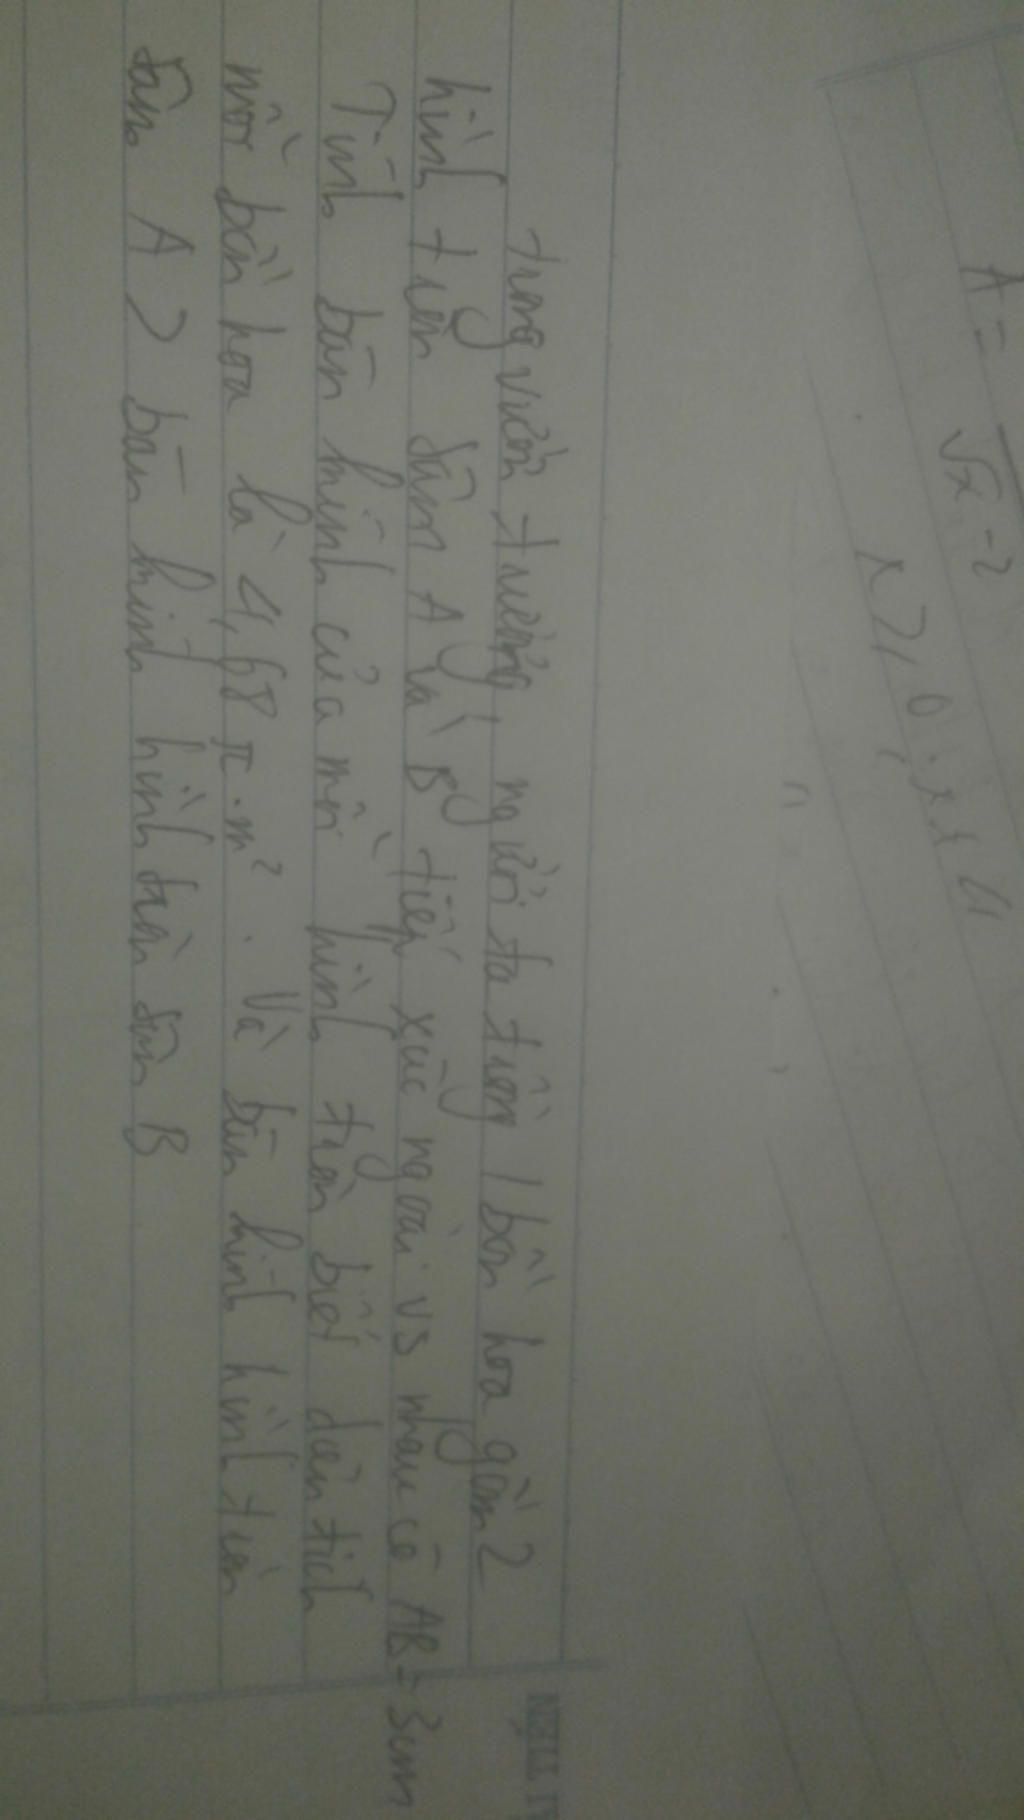 A = √x -2
x ≥ 0; x ≠ 4
trong vườn trường, người ta trồng 1 bồn hoa gồm 2
hình tròn tâm A và B tiếp xúc ngoài vs nhau có AB = 3cm
Tính bán kính của mỗi hình tròn biết diện tích
mỗi bồn hoa là 4,68 π.m². Và bán kính hình tròn
tâm A > bán kính hình tròn tâm B